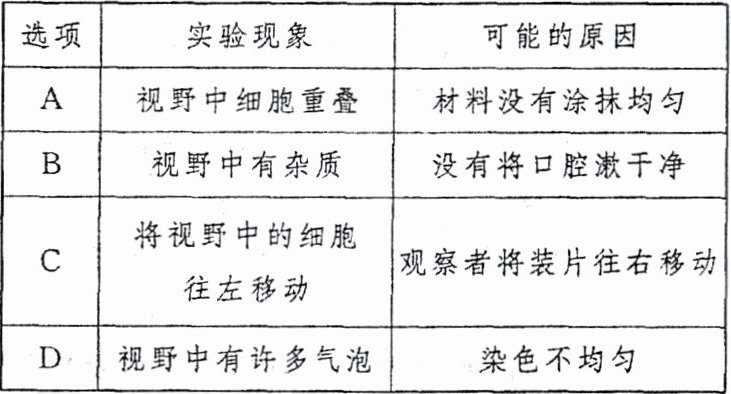 选项 实验现象 可能的原因
A 视野中细胞重叠 材料没有涂抹均匀
B 视野中有杂质 没有将口腔漱干净
C 将视野中的细胞往左移动 观察者将装片往右移动
D 视野中有许多气泡 染色不均匀